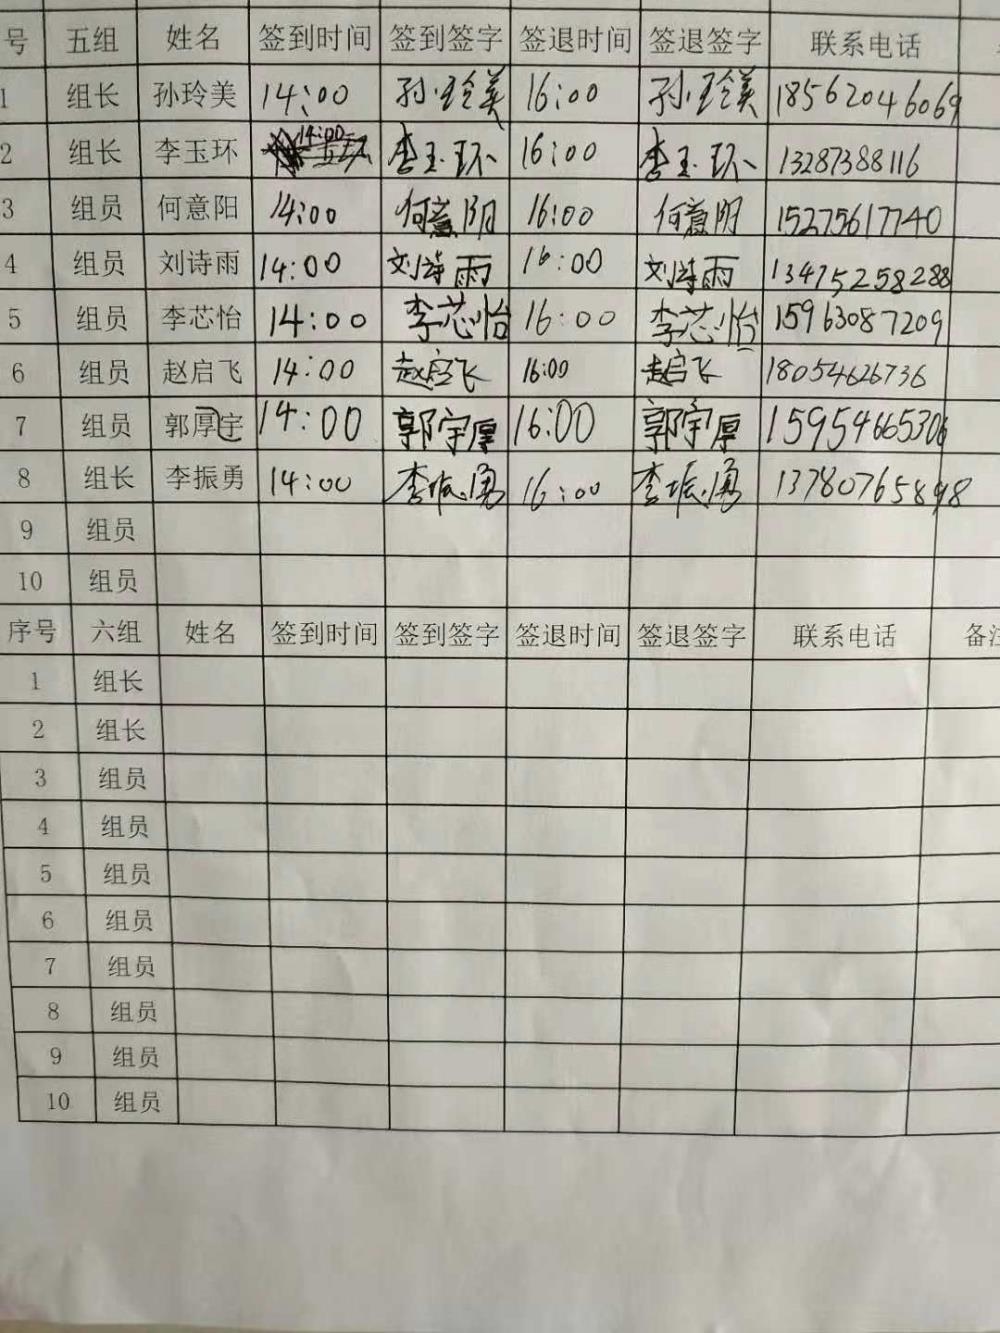 号 五组 姓名 签到时间 签到签字 签退时间 签退签字 联系电话
1 组长 孙玲美 14:00 孙玲美 16:00 孙玲美 18562046069
2 组长 李玉环 14:00 李玉环 16:00 李玉环 13287388116
3 组员 何意阳 14:00 何意阳 16:00 何意阳 15275617740
4 组员 刘诗雨 14:00 刘诗雨 16:00 刘诗雨 13475258288
5 组员 李芯怡 14:00 李芯怡 16:00 李芯怡 15963087209
6 组员 赵启飞 14:00 赵启飞 16:00 赵启飞 18054626736
7 组员 郭厚宇 14:00 郭宇厚 16:00 郭宇厚 15954665306
8 组长 李振勇 14:00 李振勇 16:00 李振勇 13780765898
9 组员
10 组员
序号 六组 姓名 签到时间 签到签字 签退时间 签退签字 联系电话 备注
1 组长
2 组长
3 组员
4 组员
5 组员
6 组员
7 组员
8 组员
9 组员
10 组员